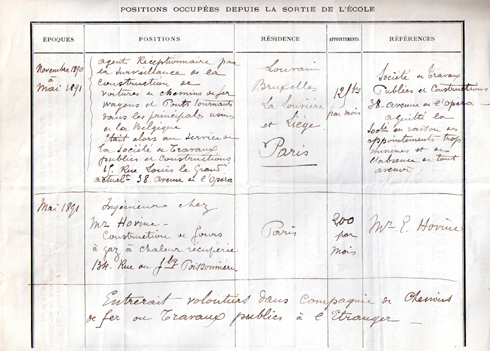 POSITIONS OCCUPÉES DEPUIS LA SORTIE DE L'ÉCOLE
ÉPOQUES
POSITIONS
RÉSIDENCE
APPOINTEMENTS
RÉFÉRENCES
Novembre 1890
à
Mai 1891
agent Réceptionnaire pour
la surveillance de la
construction de
voitures de chemins de fer
wagons et Ponts tournants
dans les principales usines
de la Belgique
Etait alors au service de
la Société de Travaux
publics et Constructions
15 Rue Louis le Grand
actuelt 38. Avenue de l'Opéra
Louvain
Bruxelles
La Louvière
et Liége
Paris
par mois
Société de Travaux
Publics et Constructions
38. avenue de l'Opéra
a quitté la
Socté en raison des
appointements trop
minimes et en
l'absence de tout
avenir
Mai 1891
Ingénieur chez
Mr Hovine
Construction de fours
à gaz à chaleur récupérée
134. Rue du fbg Poissonnière
Paris
200
par
mois
Mr E. Hovine
Entrerait volontiers dans Compagnie de Chemins
de fer ou Travaux publics à l'Etranger